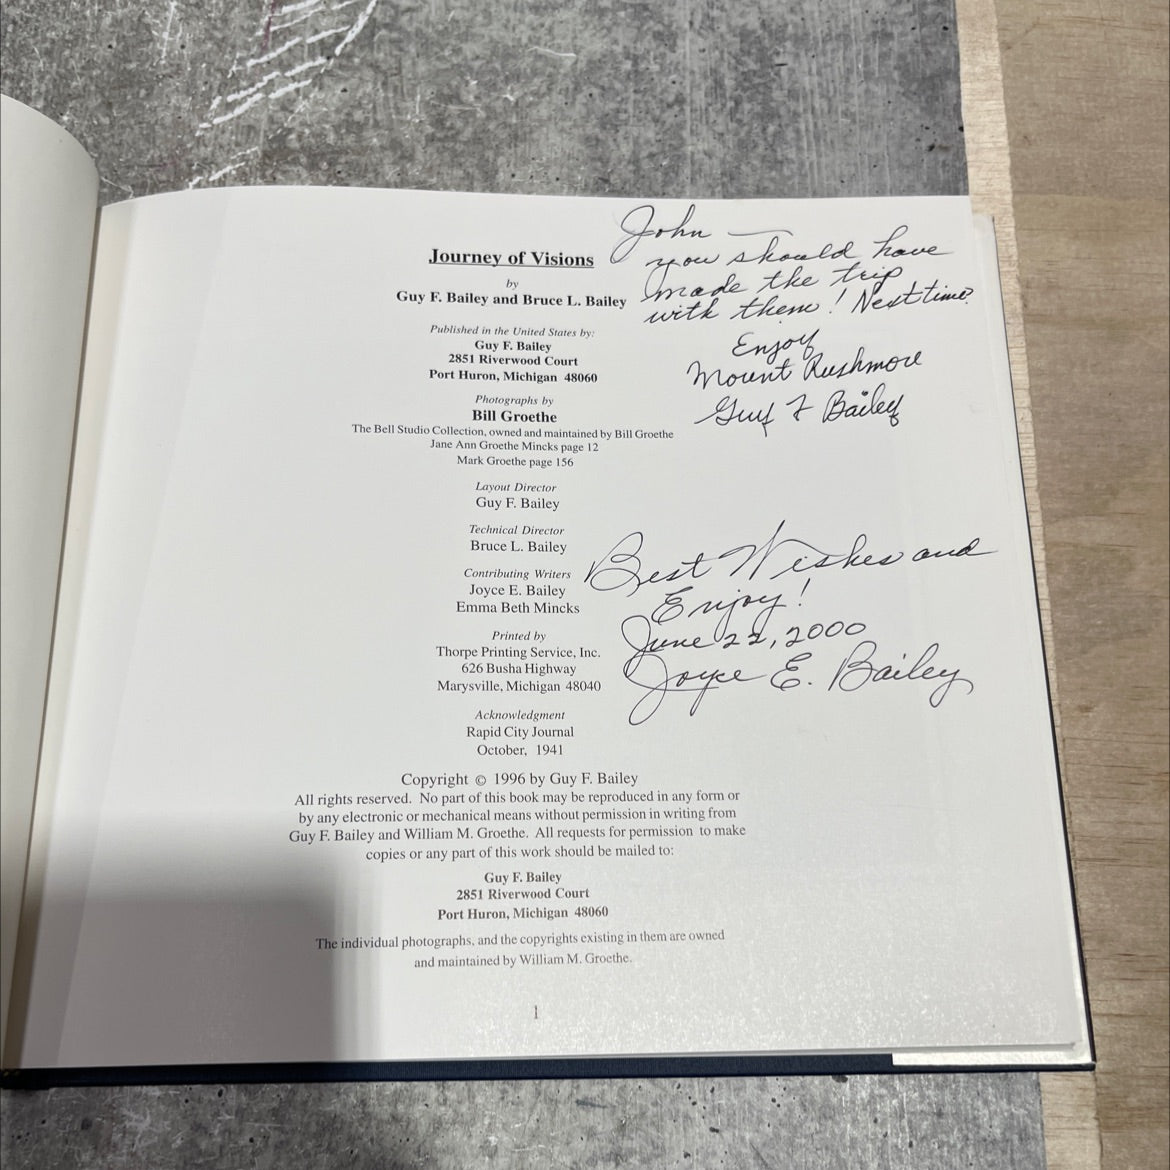 Journey of Visions
by
Guy F. Bailey and Bruce L. Bailey
Published in the United States by:
Guy F. Bailey
2851 Riverwood Court
Port Huron, Michigan 48060
Photographs by
Bill Groethe
The Bell Studio Collection, owned and maintained by Bill Groethe
Jane Ann Groethe Mincks page 12
Mark Groethe page 156
Layout Director
Guy F. Bailey
Technical Director
Bruce L. Bailey
Contributing Writers
Joyce E. Bailey
Emma Beth Mincks
Printed by
Thorpe Printing Service, Inc.
626 Busha Highway
Marysville, Michigan 48040
Acknowledgment
Rapid City Journal
October, 1941
Copyright © 1996 by Guy F. Bailey
All rights reserved. No part of this book may be reproduced in any form or
by any electronic or mechanical means without permission in writing from
Guy F. Bailey and William M. Groethe. All requests for permission to make
copies or any part of this work should be mailed to:
Guy F. Bailey
2851 Riverwood Court
Port Huron, Michigan 48060
The individual photographs, and the copyrights existing in them are owned
and maintained by William M. Groethe.
1
John —
you should have
made the trip
with them! Next time.
Enjoy
Mount Rushmore
Guy F Bailey
Best Wishes and
Enjoy!
June 22, 2000
Joyce E. Bailey